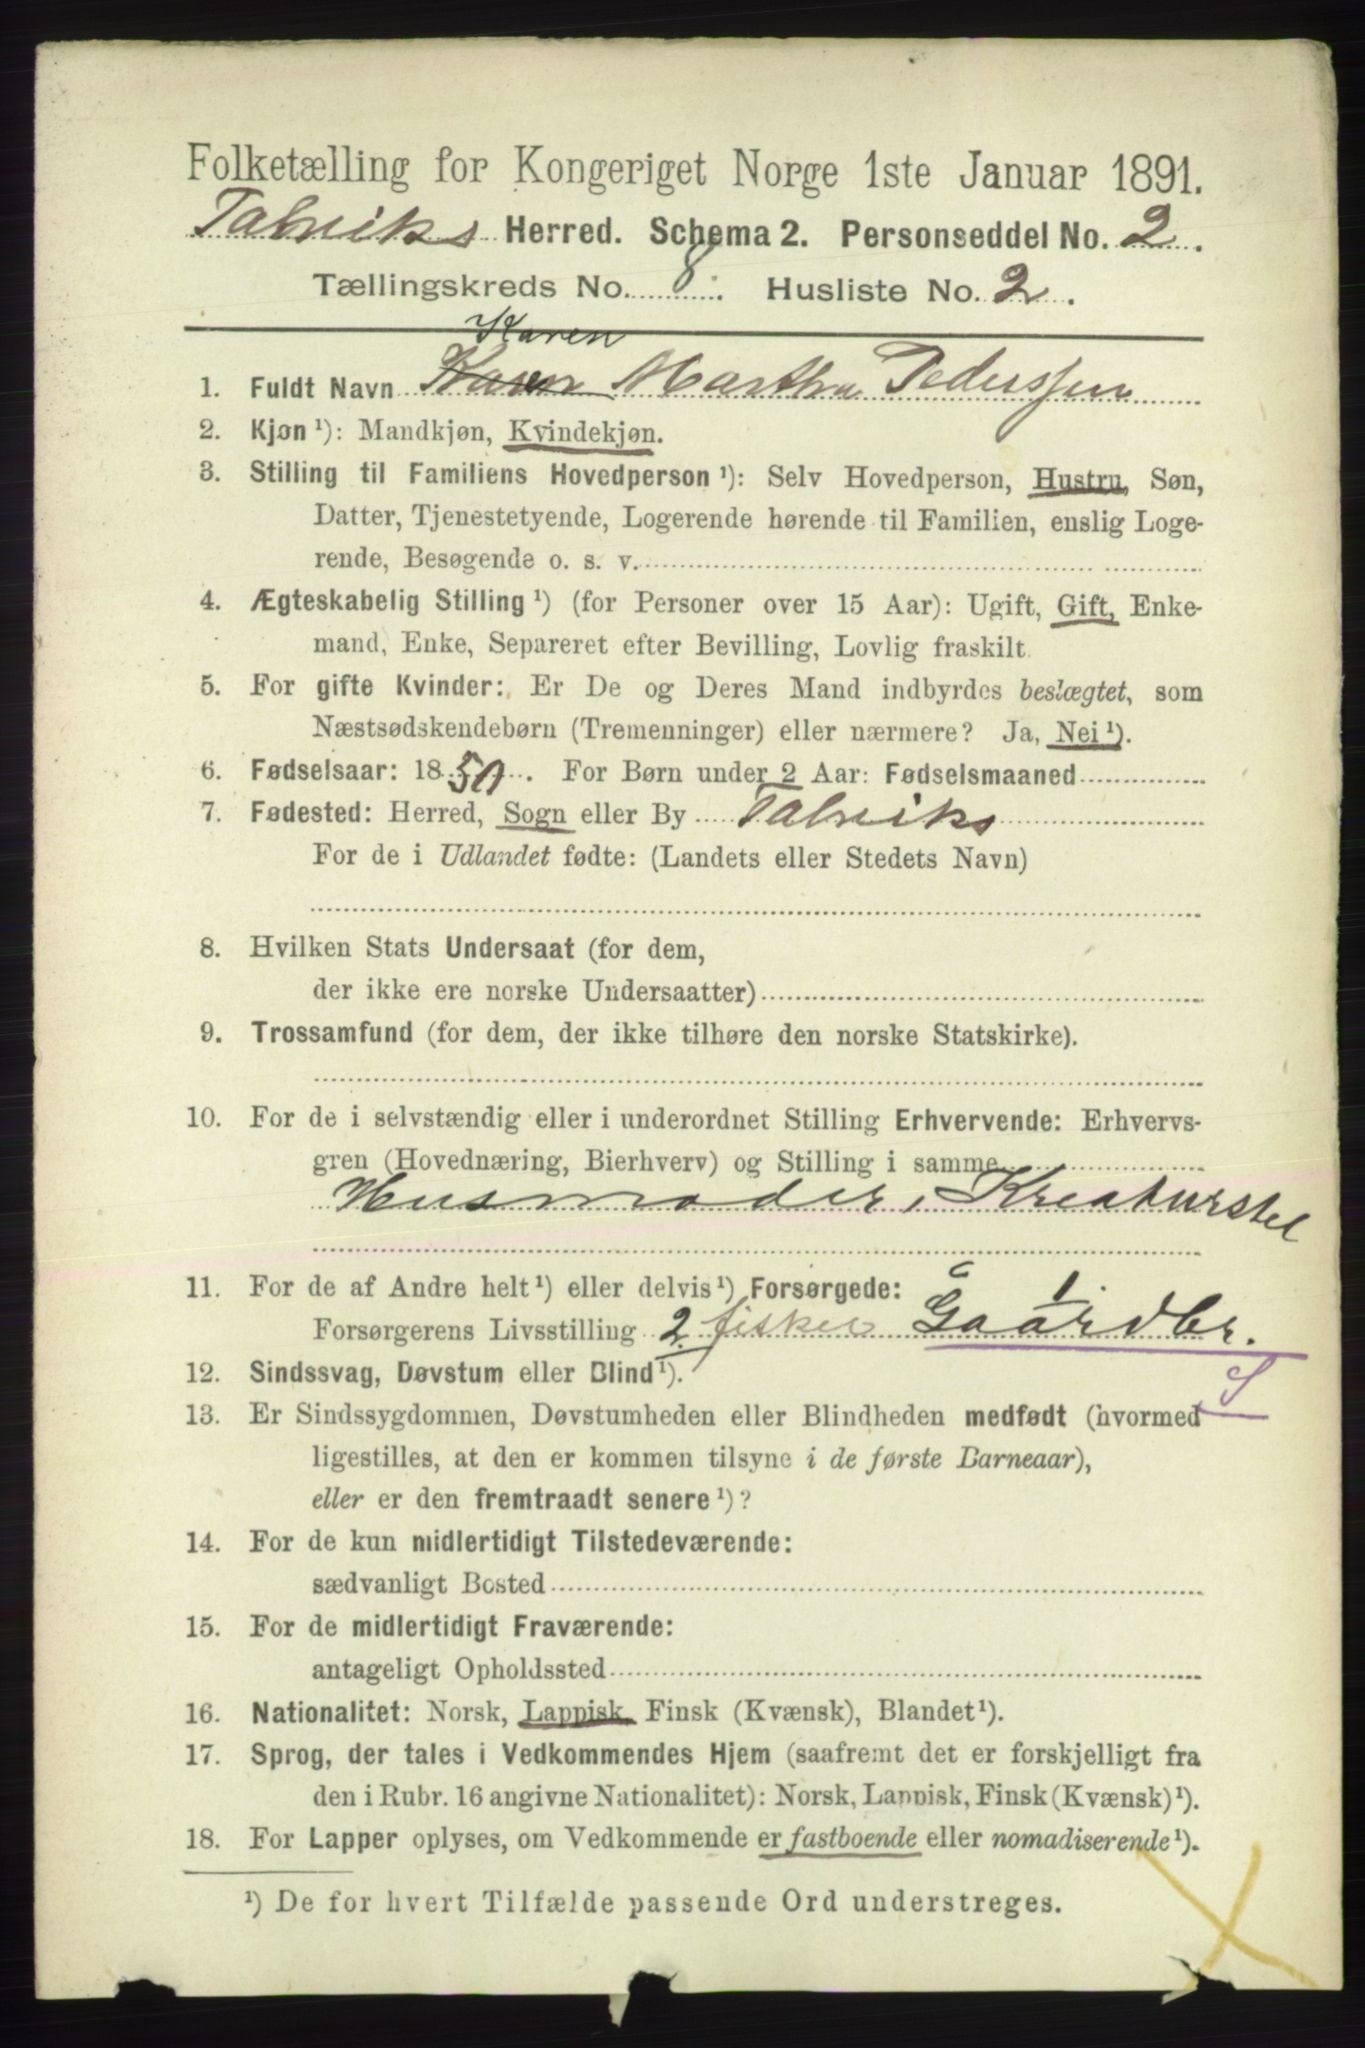 Folketælling for Kongeriget Norge 1ste Januar 1891.
Talviks Herred. Schema 2. Personseddel No. 2.
Tællingskreds No. 8. Husliste No. 2.
Karen
1. Fuldt Navn Karen Martha Pederssen
2. Kjøn ¹): Mandkjøn, Kvindekjøn.
3. Stilling til Familiens Hovedperson ¹): Selv Hovedperson, Hustru, Søn,
Datter, Tjenestetyende, Logerende hørende til Familien, enslig Loge-
rende, Besøgende o. s. v.
4. Ægteskabelig Stilling ¹) (for Personer over 15 Aar): Ugift, Gift, Enke-
mand, Enke, Separeret efter Bevilling, Lovlig fraskilt.
5. For gifte Kvinder: Er De og Deres Mand indbyrdes beslægtet, som
Næstsødskendebørn (Tremenninger) eller nærmere? Ja, Nei ¹).
6. Fødselsaar: 1850. For Børn under 2 Aar: Fødselsmaaned
7. Fødested: Herred, Sogn eller By Talviks
For de i Udlandet fødte: (Landets eller Stedets Navn)
8. Hvilken Stats Undersaat (for dem,
der ikke ere norske Undersaatter)
9. Trossamfund (for dem, der ikke tilhøre den norske Statskirke).
10. For de i selvstændig eller i underordnet Stilling Erhvervende: Erhvervs-
gren (Hovednæring, Bierhverv) og Stilling i samme
Husmoder, Kreaturstel
11. For de af Andre helt ¹) eller delvis ¹) Forsørgede:
Forsørgerens Livsstilling 2 fisker 1 Gaardbr.
12. Sindssvag, Døvstum eller Blind ¹).
13. Er Sindssygdommen, Døvstumheden eller Blindheden medfødt (hvormed
ligestilles, at den er kommen tilsyne i de første Barneaar),
eller er den fremtraadt senere ¹)?
14. For de kun midlertidigt Tilstedeværende:
sædvanligt Bosted
15. For de midlertidigt Fraværende:
antageligt Opholdssted
16. Nationalitet: Norsk, Lappisk, Finsk (Kvænsk), Blandet ¹).
17. Sprog, der tales i Vedkommendes Hjem (saafremt det er forskjelligt fra
den i Rubr. 16 angivne Nationalitet): Norsk, Lappisk, Finsk (Kvænsk) ¹).
18. For Lapper oplyses, om Vedkommende er fastboende eller nomadiserende ¹).
¹) De for hvert Tilfælde passende Ord understreges.